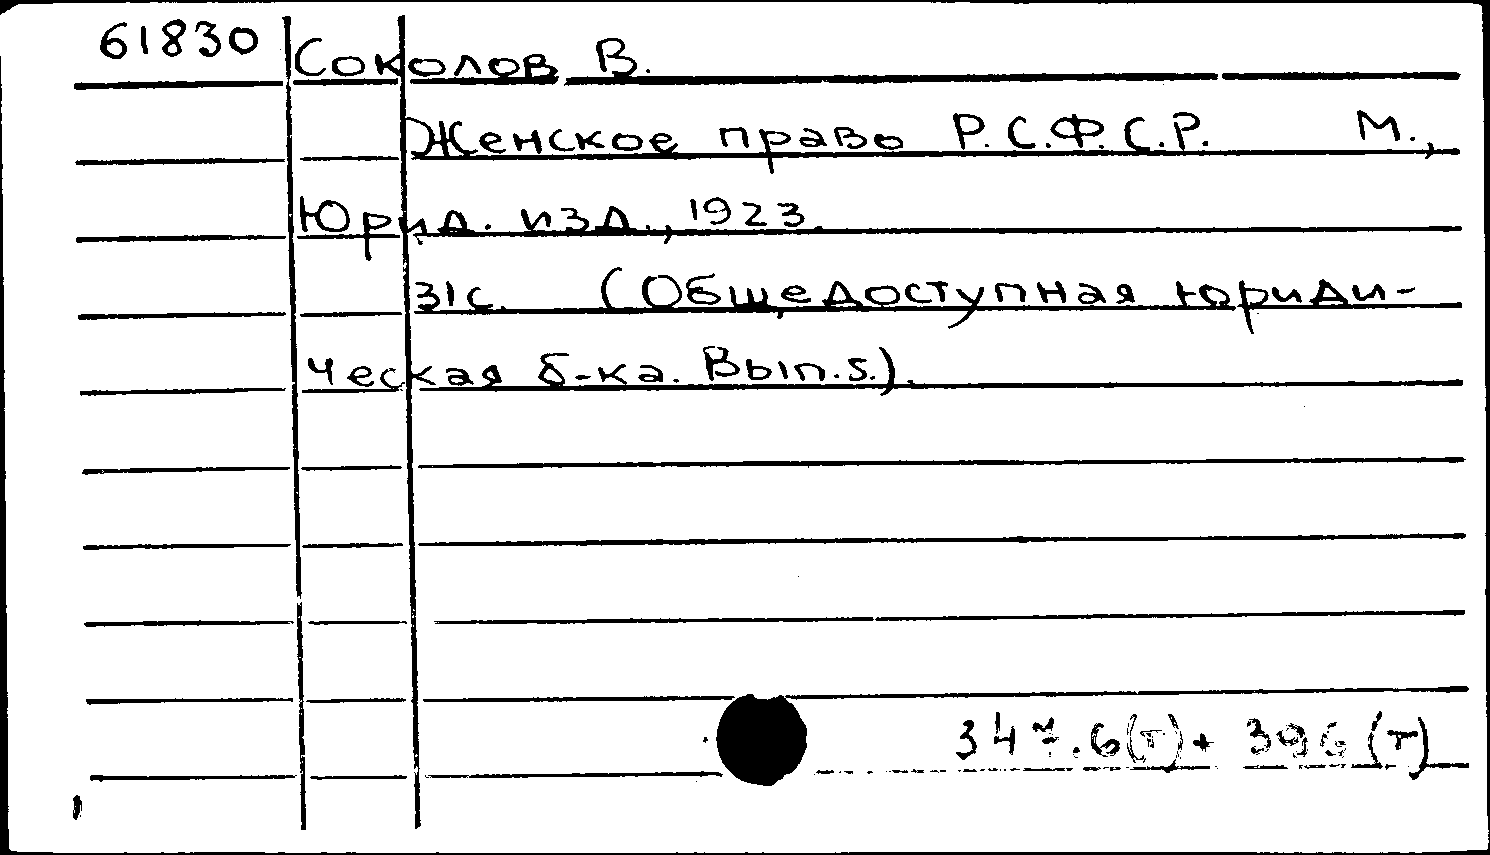 61830 Соколов В.
Женское право Р.С.Ф.С.Р. М.,
Юрид. изд., 1923.
31с. (Общедоступная юриди-
ческая б-ка. Вып.5.).
347.6(т)+ 396(т)